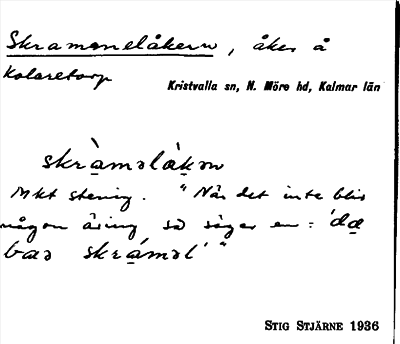 Skrammelåkern, åker å
Kolaretorp
Kristvalla sn, N. Möre hd, Kalmar län
skràməlåkən
Mkt stenig. "När det inte blir
någon äring, så säger en: 'dä
bara skràməl'"
STIG STJÄRNE 1936